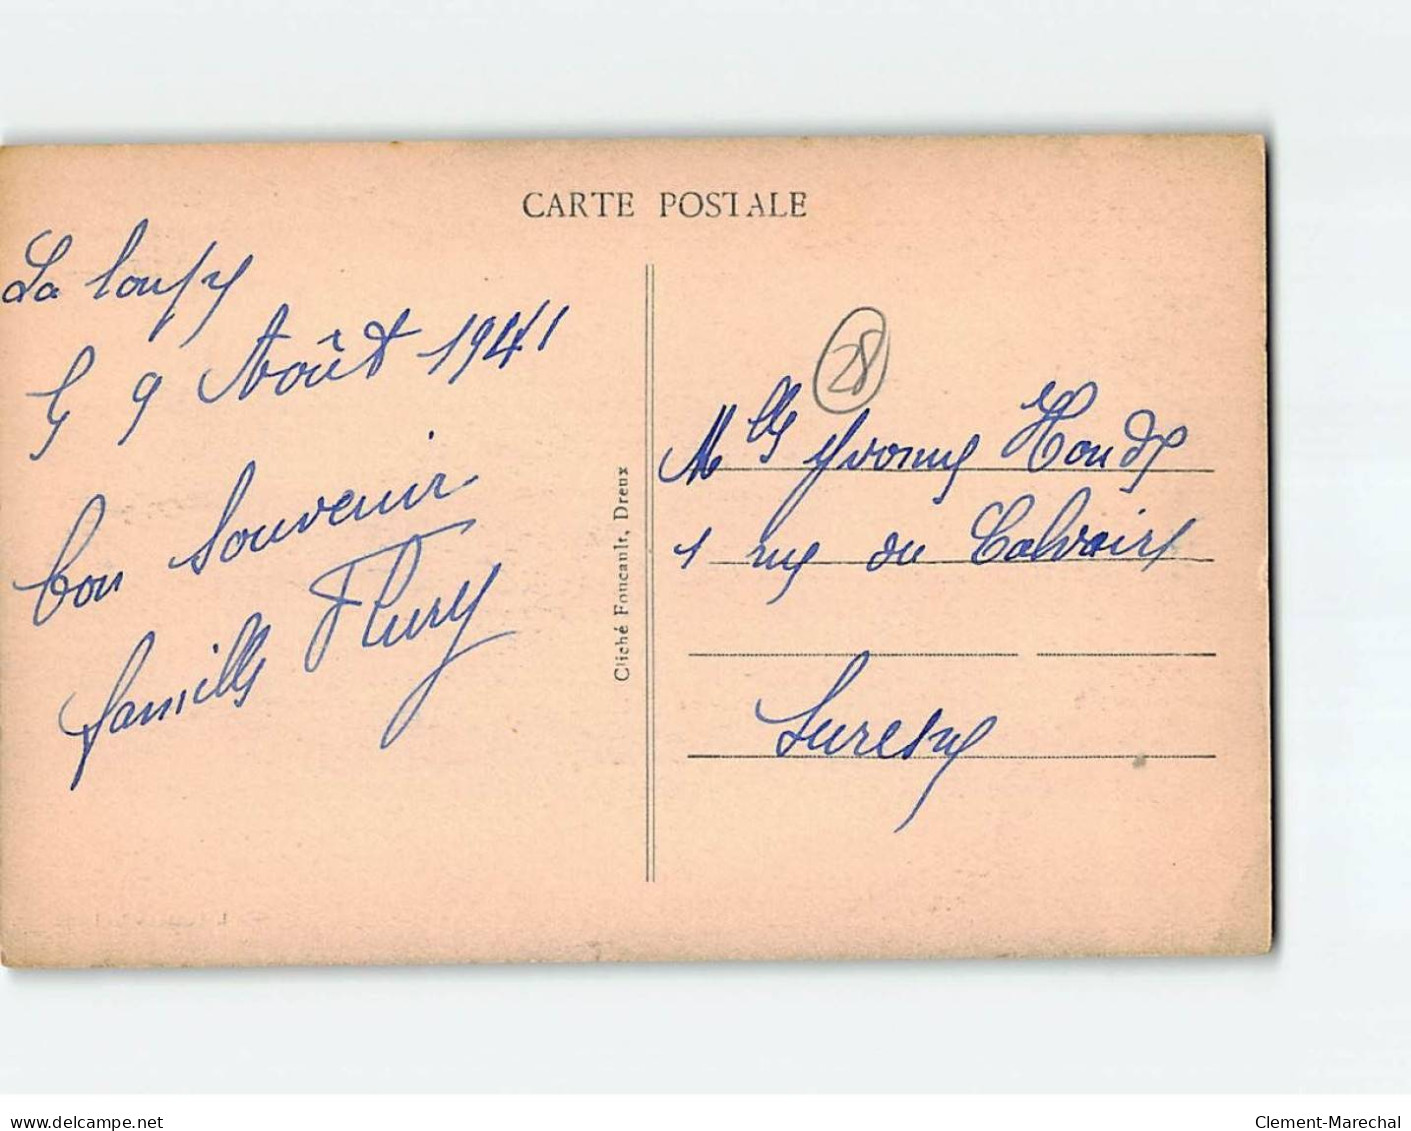 CARTE POSTALE
La Loupe
le 9 Août 1941
bon souvenir
famille Flury
Cliché Foucault, Dreux
28
Mlle Yvonne
1 rue du Calvaire
Suresne
www.delcampe.net
Clement-Marechal